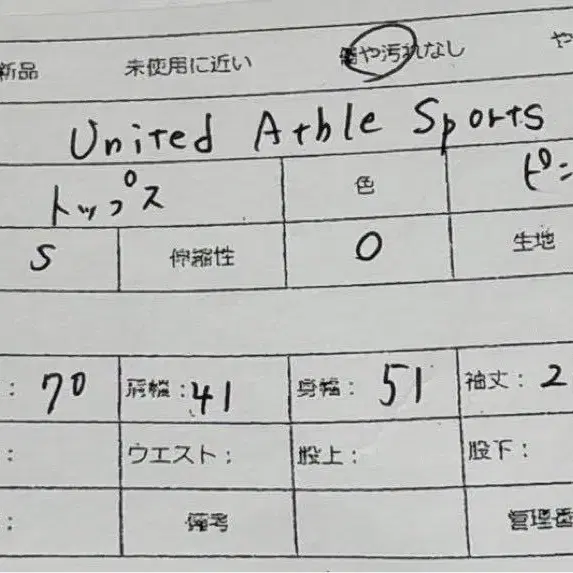 新品 未使用に近い 傷や汚れなし や
United Athle Sports
トップス 色 ピン
S 伸縮性 0 生地
: 70 肩幅:41 身幅: 51 袖丈:2
: ウエスト: 股上: 股下:
: 備考 管理番